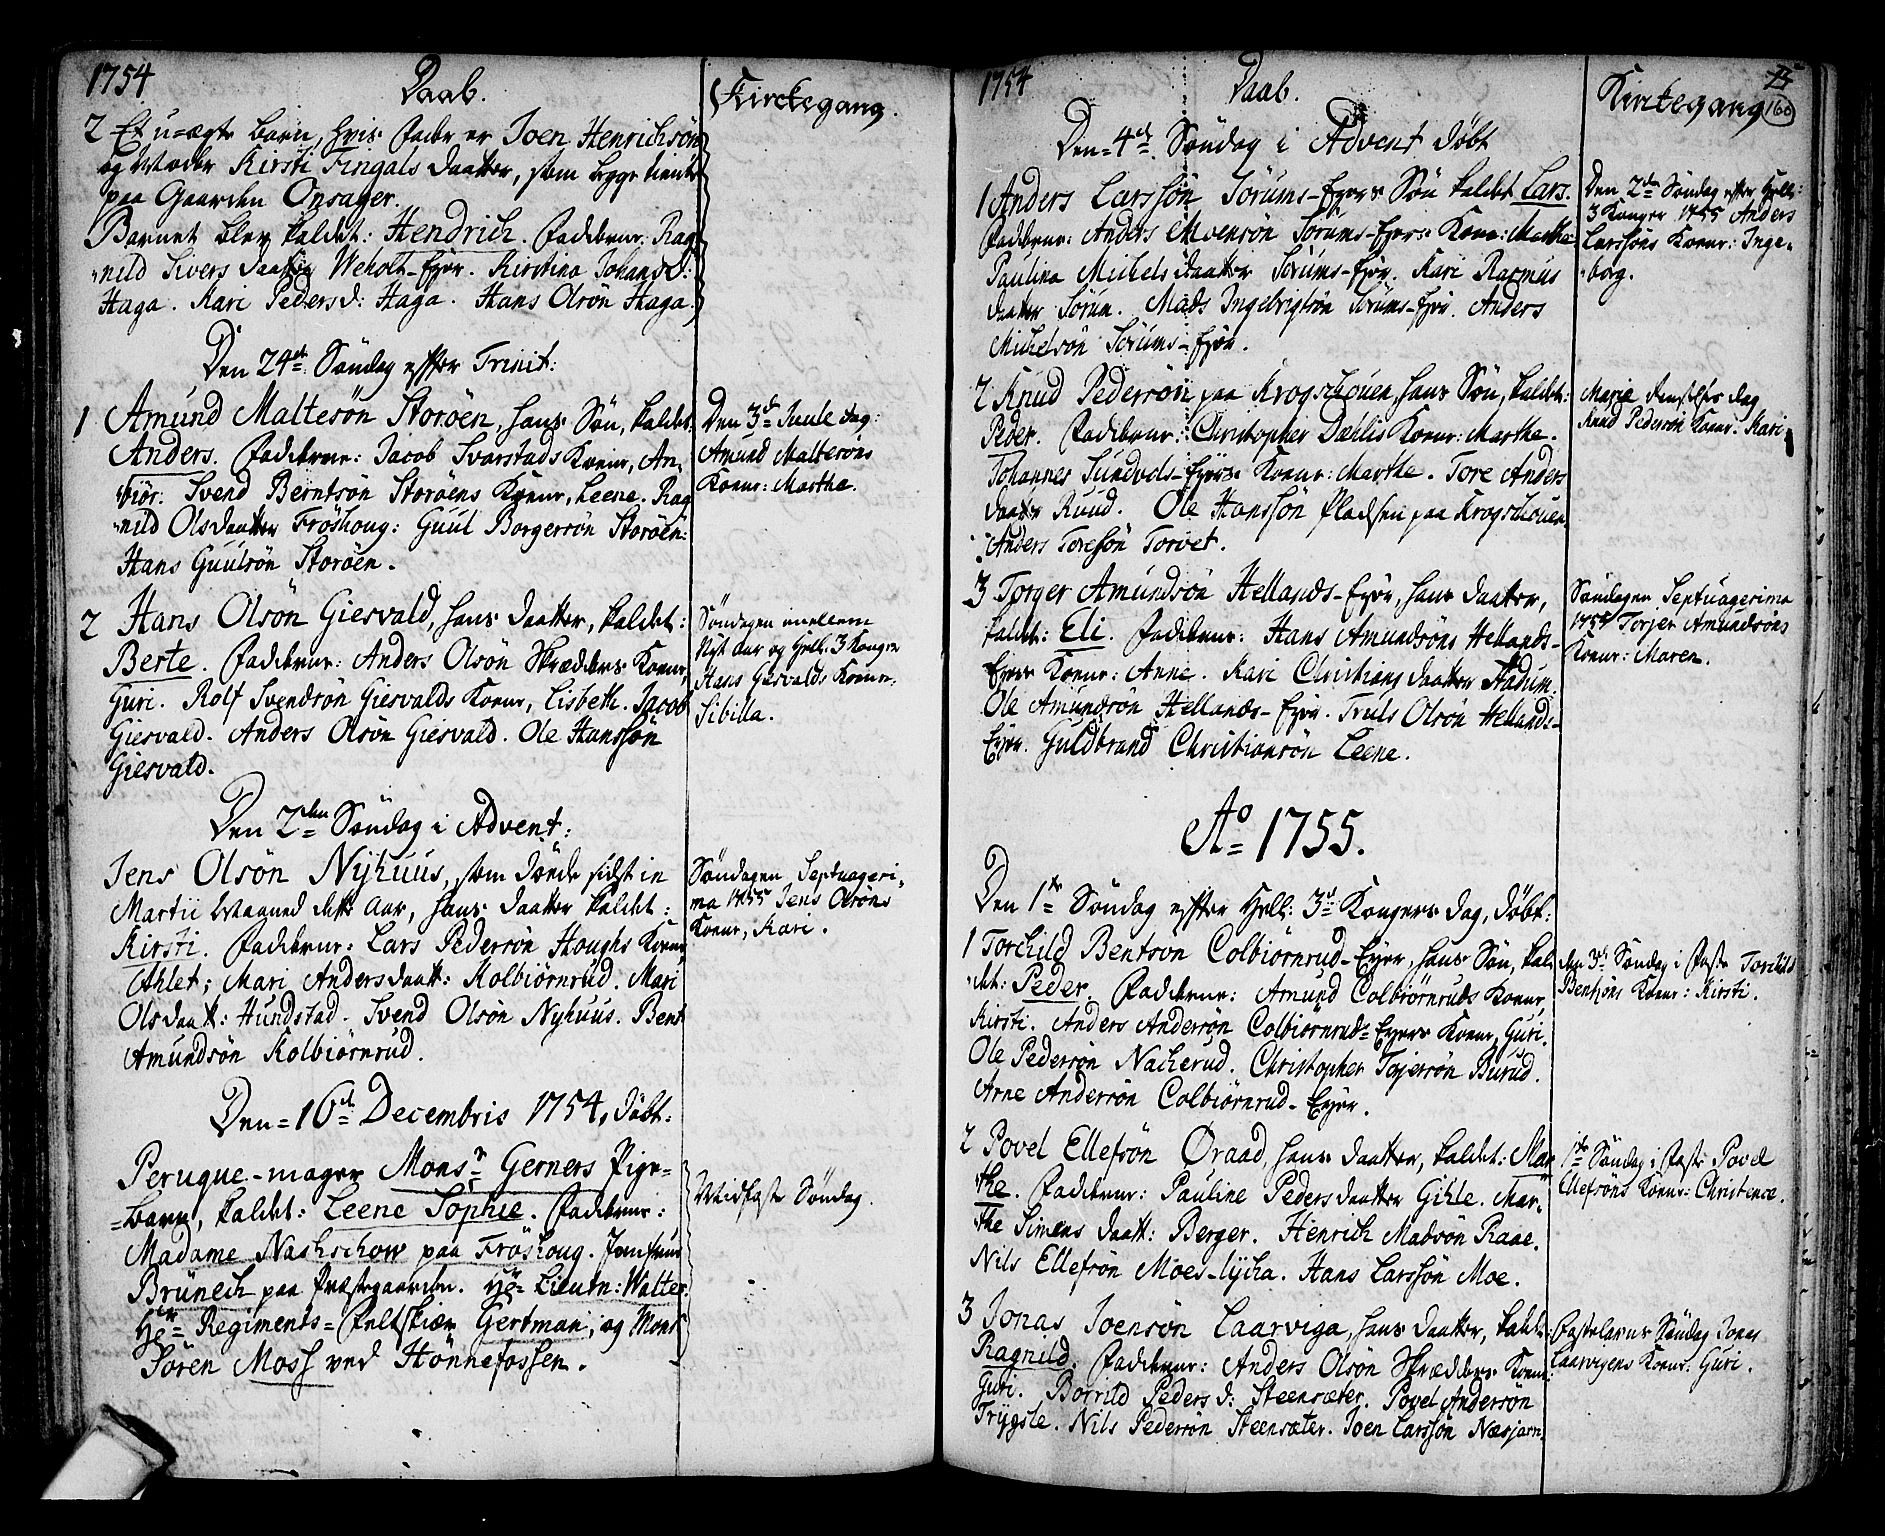 1754
Daab.
Kirckegang.
2 Et u-ægte barn, hvis Fader er Joen Henrichsön
og Moder Kirsti Fingals daatter, som begge tiente
paa Gaarden Onsager.
Barnet blev kaldet: Hendrich. Fadderne: Rag-
nild Sivers daatter Weholt-Eyer. Kirstina Johansd:
Haga. Kari Pedersd: Haga. Hans Olsön Haga.
Den 24de Söndag effter Trinit:
1 Amund Maltesön Storöen, hans Sön, kaldet
Anders. Fadderne: Jacob Svarstads Kone, An-
biör. Svend Berntsön Storöens Kone, Leene. Rag
nild Olsdaatter Fröshoug: Guul Borgersön Storöen:
Hans Guulsön Storöen.
Den 3de Juule dag:
Amund Maltesöns
Kone: Marthe.
2 Hans Olsön Giesvald, hans daatter, kaldet:
Berte. Fadderne: Anders Olsön Skrædders Kone,
Guri. Rolf Svendsön Giesvalds Kone, Lisbeth. Jacob
Giesvald. Anders Olsön Giesvald. Ole Hanssön
Giesvald.
Söndagen imellem
Nyt Aar og Hell. 3 Konger
Hans Giesvalds Kone:
Sibilla.
Den 2den Söndag i Advent:
Jens Olsön Nyhuus, som döde sidst in
Martii Maaned dette Aar, hans daatter kaldet:
Kirsti. Fadderne: Lars Pedersön Houghs Kone
Athlet; Mari Andersdaatt: Kolbiörnrud. Mari
Olsdaatt: Hundstad. Svend Olsön Nyhuus. Bent
Amundsön Kolbiörnrud.
Söndagen Septuageri-
ma 1755 Jens Olsöns
Kone, Kari.
Den 16de Decembris 1754, döbt:
Peruque-mager Monsr Gerners Pige-
barn, kaldet: Leene Sophie. Fadderne:
Madame Nashschow paa Fröshoug. Jomfrue
Brünech paa Præstegaarden. Hr Lieutn: Walter.
Hr Regiments-Feltskiær Gertman, og Monsr
Sören Moss ved Hönnefossen.
Midfaste Söndag.
1754
Daab.
Kirckegang
160
Den 4de Söndag i Advent döbt
1 Anders Larssön Sörums-Eyers Sön kaldet Lars.
Fadderne: Anders Evensön Sörums-Eyers Kone: Marthe
Paulina Michels daatter Sörums-Eyer. Kari Rasmus
daatter Sörum. Mads Ingebrigtsön Sörums-Eyer. Anders
Michelsön Sörums-Eyer.
Den 2den Söndag effter Hell:
3 Konger 1755 Anders
Larssöns Kone: Inge-
borg.
2 Knud Pedersön paa Krogschouen, hans Sön, kaldet:
Peder. Fadderne: Christopher Dæhlis Kone: Marthe.
Johannes Sundvols-Eyers Kone: Marthe. Tore Anders
daatter Ruud. Ole Hanssön Pladsen paa Krogschouen.
Anders Toressön Torvet.
Mariæ dag
Knud Pedersön Kone: Kari
3 Torger Amundsön Hellands-Eyer, hans daatter,
kaldet: Eli. Fadderne: Hans Amundsöns Hellands-
Eyers Kone: Anne. Kari Christians daatter Aadum.
Ole Amundsön Hellands-Eyer. Truls Olsön Hellands-
Eyer. Guldbrand Christiansön Leene.
Söndagen Septuagesima
1755 Torjer Amundsöns
Kone: Maren.
Ao 1755.
Den 1te Söndag effter Hell: 3de Kongers dag, döbt:
1 Torchild Bentsøn Colbiörnrud-Eyer, hans Sön, kal-
det: Peder. Fadderne: Amund Colbiörnruds Kone
Kirsti. Anders Andersön Colbiörnruds Eyers Kone, Guri.
Ole Pedersön Nacherud. Christopher Tojersön Burud.
Arne Andersön Colbiörnrud-Eyer.
den 3de Söndag i Faste Torchild
Bentsöns Kone: Kirsti.
2 Povel Ellefsön Øraad, hans daatter, kaldet: Mar
the. Fadderne: Pauline Peders daatter Gihle. Mar-
the Simens daatt: Berger. Henrich Madsön Raae.
Nils Ellefsön Moes-lycka. Hans Larssön Moe.
1te Söndag i Faste Povel
Ellefsöns Kone: Christence.
3 Jonas Joensön Laarviga, hans daatter, kaldet:
Ragnild. Fadderne: Anders Olsön Skrædders Kone:
Guri. Borrild Peders d: Steensæter. Povel Andersön
Trygsle. Nils Pedersön Steensæter. Joen Larssön Næsjarn.
Fastelavns Söndag Jonas
Laarvigens Kone: Guri.